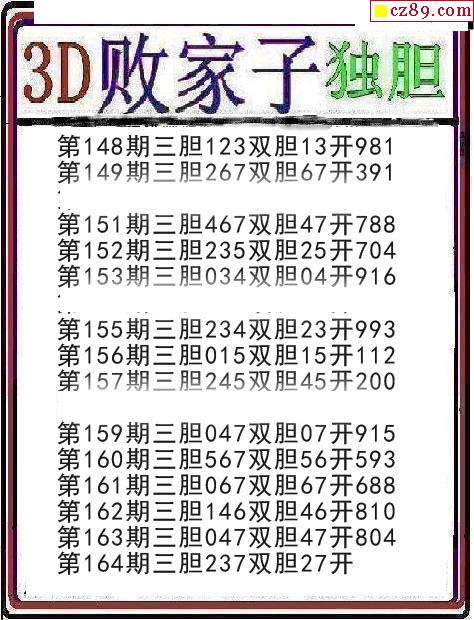 cz89.com
3D败家子独胆
第148期三胆123双胆13开981
第149期三胆267双胆67开391
第151期三胆467双胆47开788
第152期三胆235双胆25开704
第153期三胆034双胆04开916
第155期三胆234双胆23开993
第156期三胆015双胆15开112
第157期三胆245双胆45开200
第159期三胆047双胆07开915
第160期三胆567双胆56开593
第161期三胆067双胆67开688
第162期三胆146双胆46开810
第163期三胆047双胆47开804
第164期三胆237双胆27开